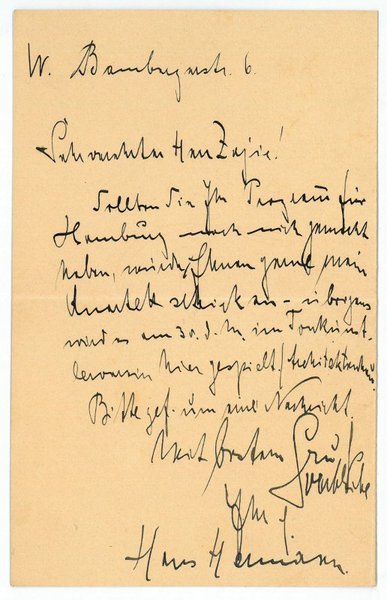 W. Bambergerstr. 6.
Sehr verehrter Herr Zajic!
Sollten Sie Ihr Program für
Hamburg noch nicht gemacht
haben, würde Ihnen gerne mein
Quartett schicken – übrigens
wird es am 30. d. M. im Tonkünst-
lerverein hier gespielt
Bitte gef. um eine Nachricht.
Mit bestem Gruß
Ihr
Hans Hermann.